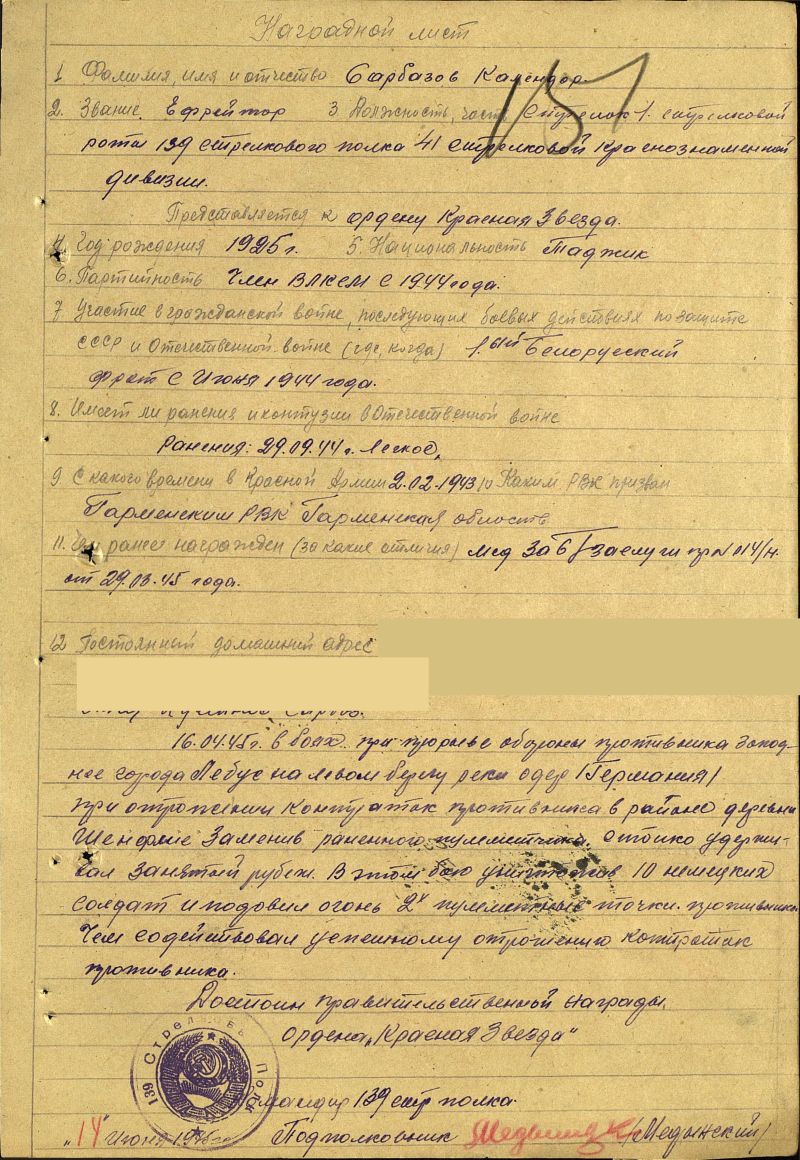 Наградной лист
1 Фамилия, имя и отчество Сарбазов Календар.
2. Звание Ефрейтор 3 Должность, часть Стрелок 1. стрелковой
роты 139 стрелкового полка 41 стрелковой Краснознаменной
дивизии.
Представляется к ордену Красная Звезда.
4. Год рождения 1925 г. 5. Национальность Таджик
6. Партийность Член ВЛКСМ с 1944 года.
7 Участие в гражданской войне, последующих боевых действиях по защите
СССР и Отечественной войне (где, когда) 1.ый Белорусский
фронт с Июня 1944 года.
8. Имеет ли ранения и контузии в Отечественной войне
Ранения: 29.09.44 г. Легкое,
9. С какого времени в Красной Армии 2.02.1943 10 Каким РВК призван
Гарменским РВК Гарменская область
11. Чем ранее награжден (за какие отличия) мед За б/заслуги пр N 014/н.
от 29.03.45 года.
12 Постоянный домашний адрес
16.04.45 г. в боях при прорыве обороны противника запад-
нее города Лебус на левом берегу реки Одер /Германия/
при отражении контратак противника в районе деревни
Шенфлис заменив раненного пулеметчика стойко удержи-
вал занятый рубеж. В этом бою уничтожив 10 немецких
солдат и подовил огонь 2х пулеметные точки противника.
Чем содействовал успешному отражению контратак
противника.
Достоин правительственной награды
Ордена "Красная Звезда"
139 Стрел Полк
Командир 139 стр полка.
"14" Июня 1945 г. Подполковник /Медынский/